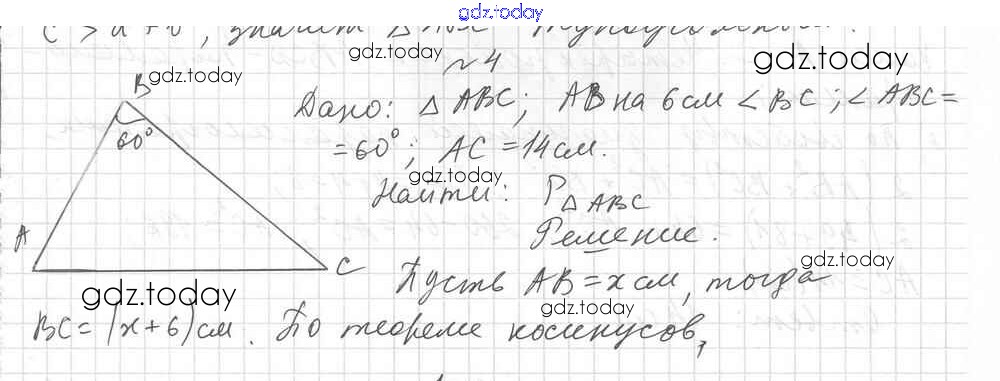 gdz.today
с > а + в, значит △ АВС
gdz.today gdz.today
№ 4
B gdz.today
60°
Дано: △ ABC; AB на 6 см < BC; ∠ ABC =
= 60°; AC = 14 см.
gdz.today
Найти: P△ ABC
A
Решение.
gdz.today
C Пусть AB = x см, тогда
gdz.today gdz.today
BC = (x + 6) см. По теореме косинусов,